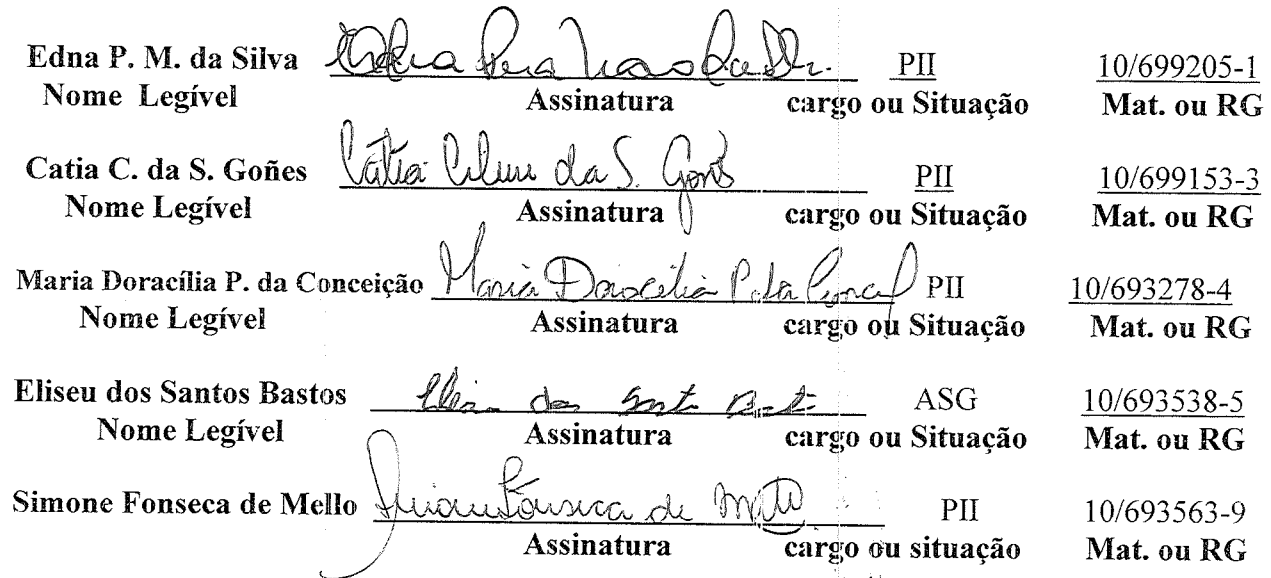 Edna P. M. da Silva PII 10/699205-1
Nome Legível Assinatura cargo ou Situação Mat. ou RG
Catia C. da S. Goñes Cátia Cilene da S. PII 10/699153-3
Nome Legível Assinatura cargo ou Situação Mat. ou RG
Maria Doracília P. da Conceição Maria Doracilia P. da PII 10/693278-4
Nome Legível Assinatura cargo ou Situação Mat. ou RG
Eliseu dos Santos Bastos ASG 10/693538-5
Nome Legível Assinatura cargo ou Situação Mat. ou RG
Simone Fonseca de Mello Fonseca de PII 10/693563-9
Assinatura cargo ou situação Mat. ou RG